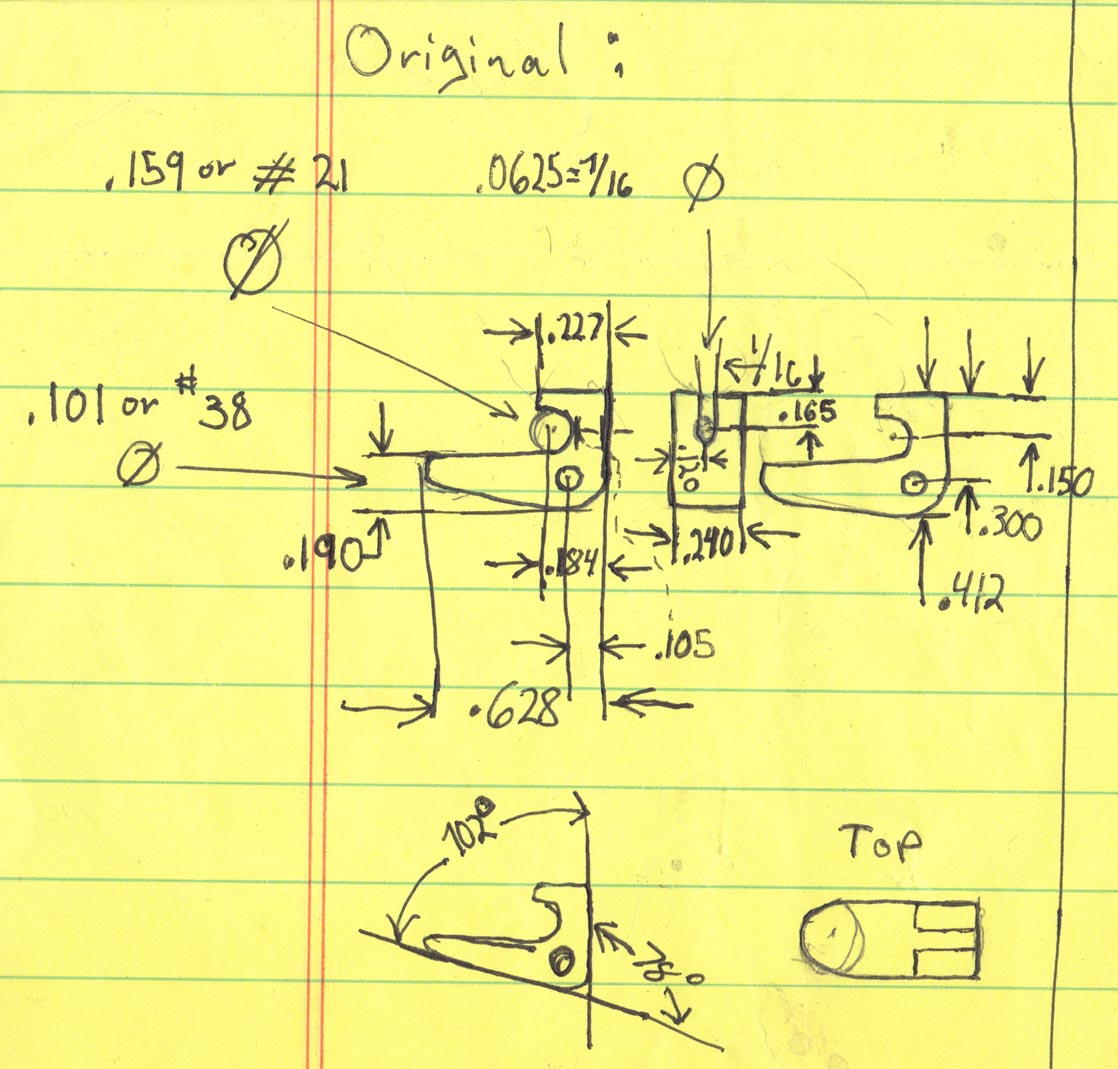 Original :
.159 or # 21
.0625=1/16 Ø
Ø
.227
1/16
.101 or #38
.165
Ø
.120
.150
.190
.184
.240
.300
.412
.105
.628
102°
78°
Top